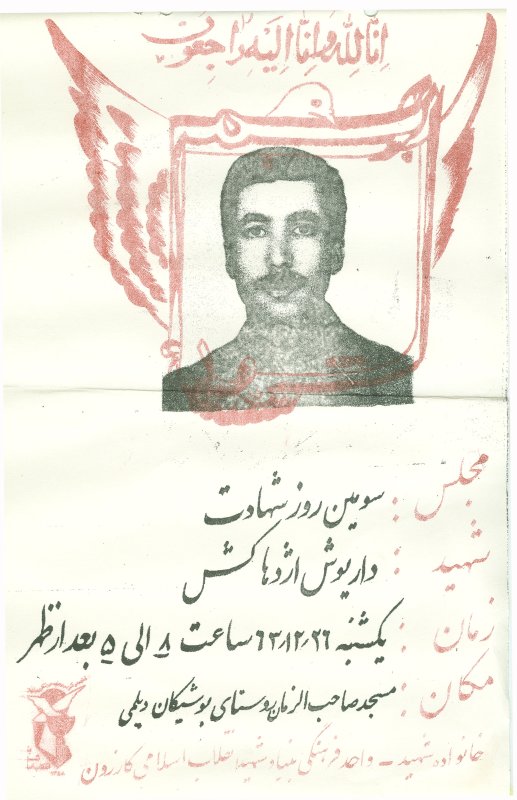 انا لله و انا الیه راجعون
مجلس : سومین روز شهادت
شهید : داریوش اژدهاکش
زمان : یکشنبه ۶۳/۱۲/۲۶ ساعت ۸ الی ۵ بعد از ظهر
مکان : مسجد صاحب الزمان روستای بوشیکان دیلمی
خانواده شهید - واحد فرهنگی بنیاد شهید انقلاب اسلامی کازرون